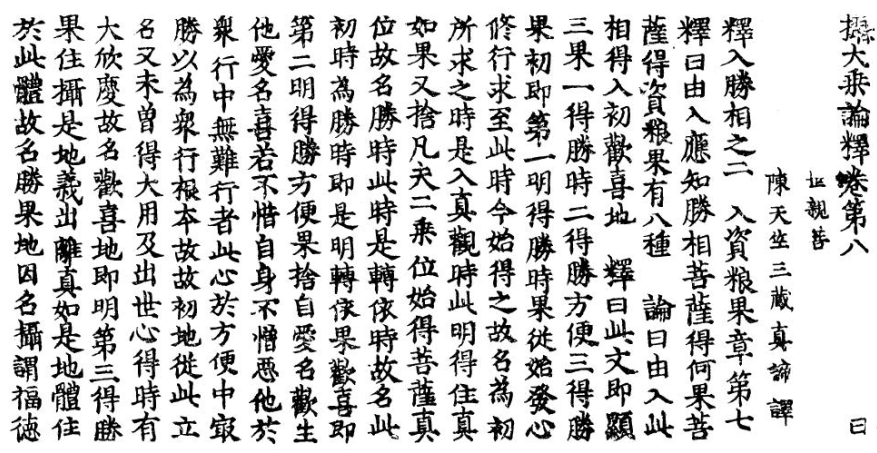 攝大乘論釋卷第八 日
世親菩
陳天竺三藏真諦譯
釋入勝相之二 入資粮果章第七
釋曰由入應知勝相菩薩得何果菩
薩得資粮果有八種 論曰由入此
相得入初歡喜地 釋曰此文即顯
三果一得勝時二得勝方便三得勝
果初即第一明得勝時果從始發心
修行求至此時今始得之故名為初
所求之時是入真觀時此明得住真
如果又捨凡夫二乘位始得菩薩真
位故名勝時此時是轉依時故名此
初時為勝時即是明轉依果歡喜即
第二明得勝方便果捨自愛名歡生
他愛名喜若不惜自身不憎惡他於
衆行中無難行者此心於方便中㝡
勝以為衆行根本故故初地從此立
名又未曾得大用及出世心得時有
大欣慶故名歡喜地即明第三得勝
果住攝是地義出離真如是地體住
於此體故名勝果地因名攝謂福德